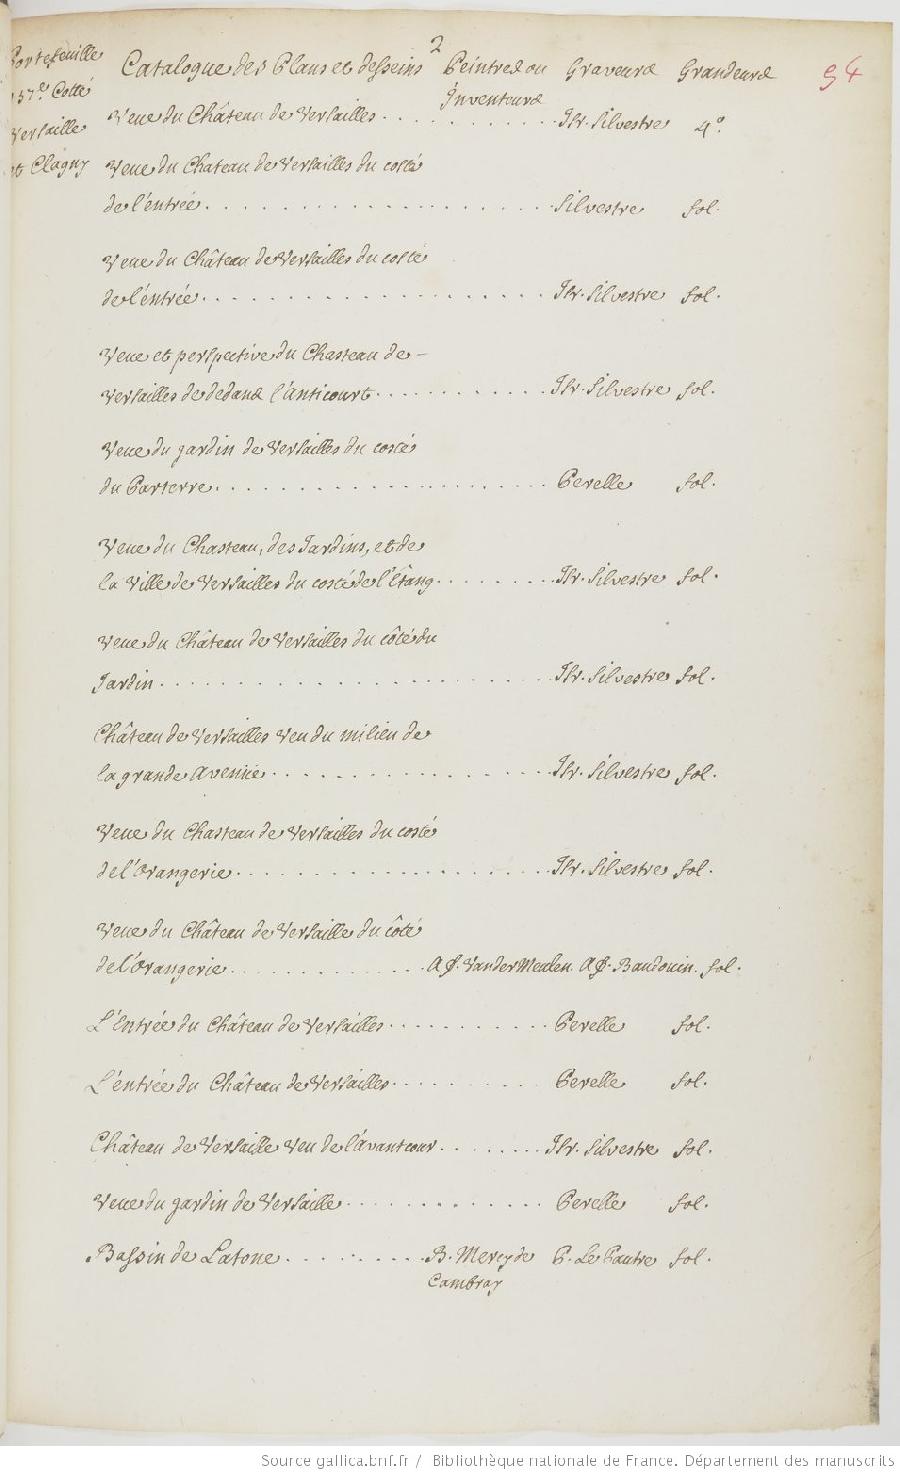 2
94
Portefeuille
157e. Cotté
Versaille
et Clagny
Catalogue des Plans et desseins Peintres ou Inventeurs Graveurs Grandeurs
Veue du Château de Versailles . . . . . . . . . . . Isr. Silvestre 4º.
Veue du Chateau de Versailles du costé
de l'entrée . . . . . . . . . . . . . . . . . . . . . Silvestre fol.
Veue du Château de Versailles du costé
de l'entrée . . . . . . . . . . . . . . . . . . . . . Isr. Silvestre fol.
Veue et perspective du Chasteau de -
Versailles de dedans l'anticourt . . . . . . . . . . . Isr. Silvestre fol.
Veue du gardin de Versailles du costés
du Parterre . . . . . . . . . . . . . . . . . . . . . Perelle fol.
Veue du Chasteau, des Jardins, et de
la Ville de Versailles du costé de l'Etang . . . . . . . . Isr. Silvestre fol.
Veue du Château de Versailles du côté du
Jardin . . . . . . . . . . . . . . . . . . . . . . . Isr. Silvestre fol.
Château de Versailles veu du milieu de
la grande avenüe . . . . . . . . . . . . . . . . . . Isr. Silvestre fol.
Veue du Chasteau de Versailles du costé
de l'Orangerie . . . . . . . . . . . . . . . . . . . Isr. Silvestre fol.
Veue du Château de Versaille du côté
de l'Orangerie . . . . . . . . . . . . . A F. Van der Meulen. A F. Baudouin. fol.
L'Entrée du Château de Versailles . . . . . . . . . . Perelle fol.
L'entrée du Château de Versailles . . . . . . . . . . Perelle fol.
Château de Versaille veu de l'avantcour . . . . . . . . Isr. Silvestre fol.
Veue du gardin de Versaille . . . . . . . . . . . . . Perelle fol.
Bassin de Latone . . . . . . . . . . B. Mercy de P. Le Pautre fol.
Cambray
Source gallica.bnf.fr / Bibliothèque nationale de France. Département des manuscrits